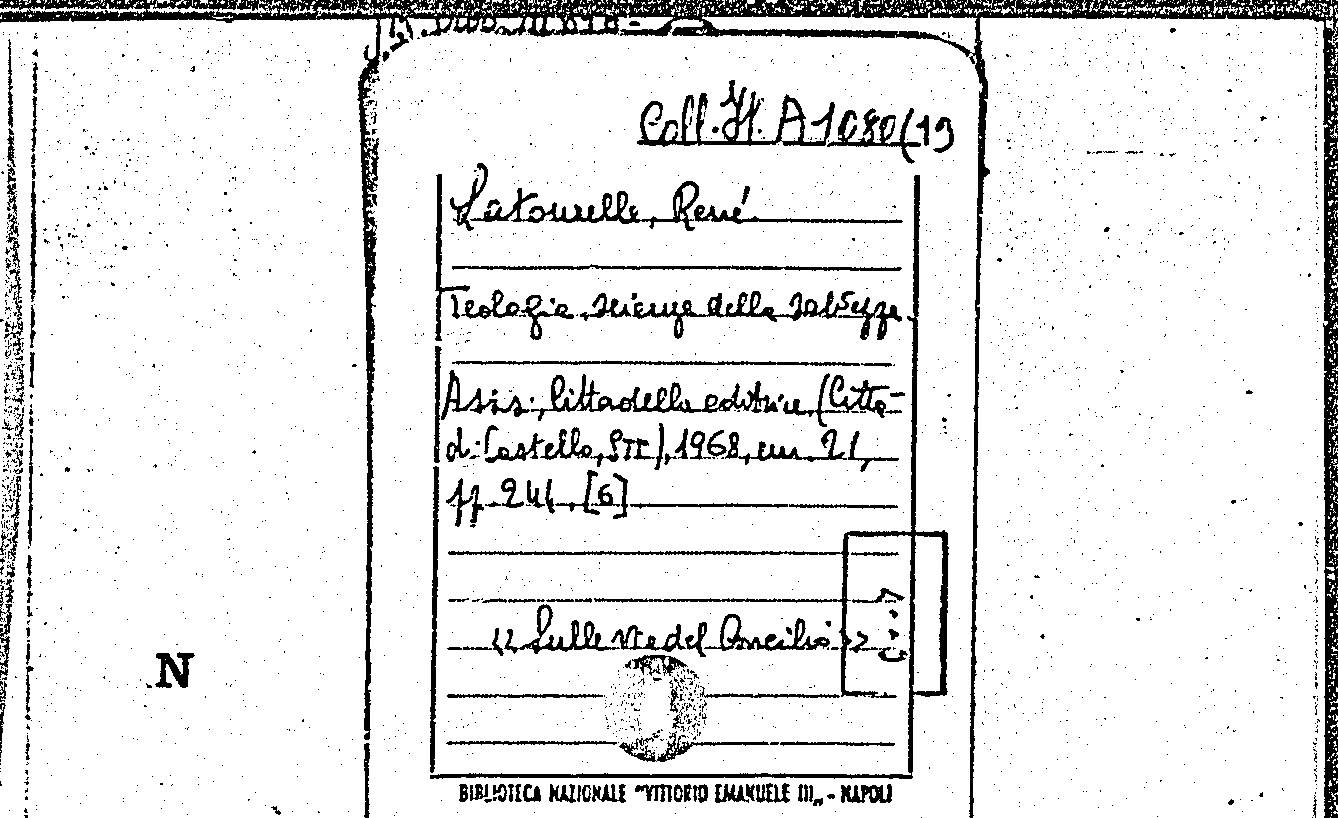 Coll. It. A 1080(19
Latourelle, René
Teologia, scienza della salvezza.
Assisi, Cittadella editrice (Città
di Castello, STE), 1968, cm. 21,
pp. 241, [6]
<< Sulle vie del Concilio >>
N
BIBLIOTECA NAZIONALE "VITTORIO EMANUELE III„ - NAPOLI